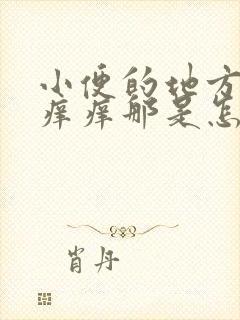 小便的地方
痒痒那是怎
肖丹